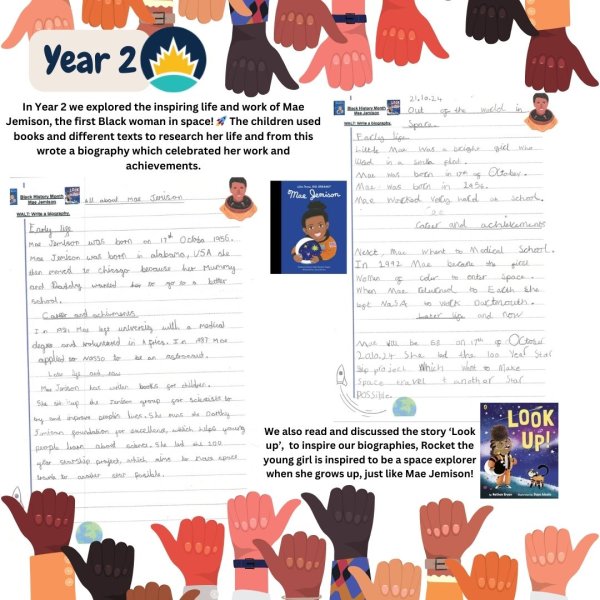 Year 2
In Year 2 we explored the inspiring life and work of Mae
Jemison, the first Black woman in space! 🚀 The children used
books and different texts to research her life and from this
wrote a biography which celebrated her work and
achievements.
Black History Month
Mae Jemison
All about Mae Jemison
WALT: Write a biography.
Early life
Mae Jemison was born on 17th Octobo 1956.
Mae Jemison was born in alabama, USA she
then moved to chicago because her Mummy
and Daddy wanted her to go to a better
school.
and
In 1981 Mae university with a medical
degree and in Africa. In 1987 Mae
to be an
and now
Mae Jemison has books for children.
She set up the Jemison group for scientists to
try and improve people's lives. She runs the
Jemison foundation for excellence, which helps young
people learn about science. She led the 100
year starship project, which aims to
travel to another star possible.
Little People, BIG DREAMS
Mae Jemison
Black History Month
Mae Jemison
21.10.24
Out of the world in
Space.
WALT: Write a biography.
Early life
Little Mae was a bright girl who
lived in a small
Mae was born in 17th of October.
Mae was born in 1956.
Mae worked very hard at school.
and achievements
Next, Mae whent to Medical School.
In 1992 Mae became the first
Women of color to enter space.
When Mae returned to Earth she
left NaSA to work
later life and now
Mae will be 68 on 17th of October
2024. She led the 100 Year Star
Ship project which want to Make
Space travel to another Star
possible.
We also read and discussed the story ‘Look
up’, to inspire our biographies, Rocket the
young girl is inspired to be a space explorer
when she grows up, just like Mae Jemison!
LOOK
UP!